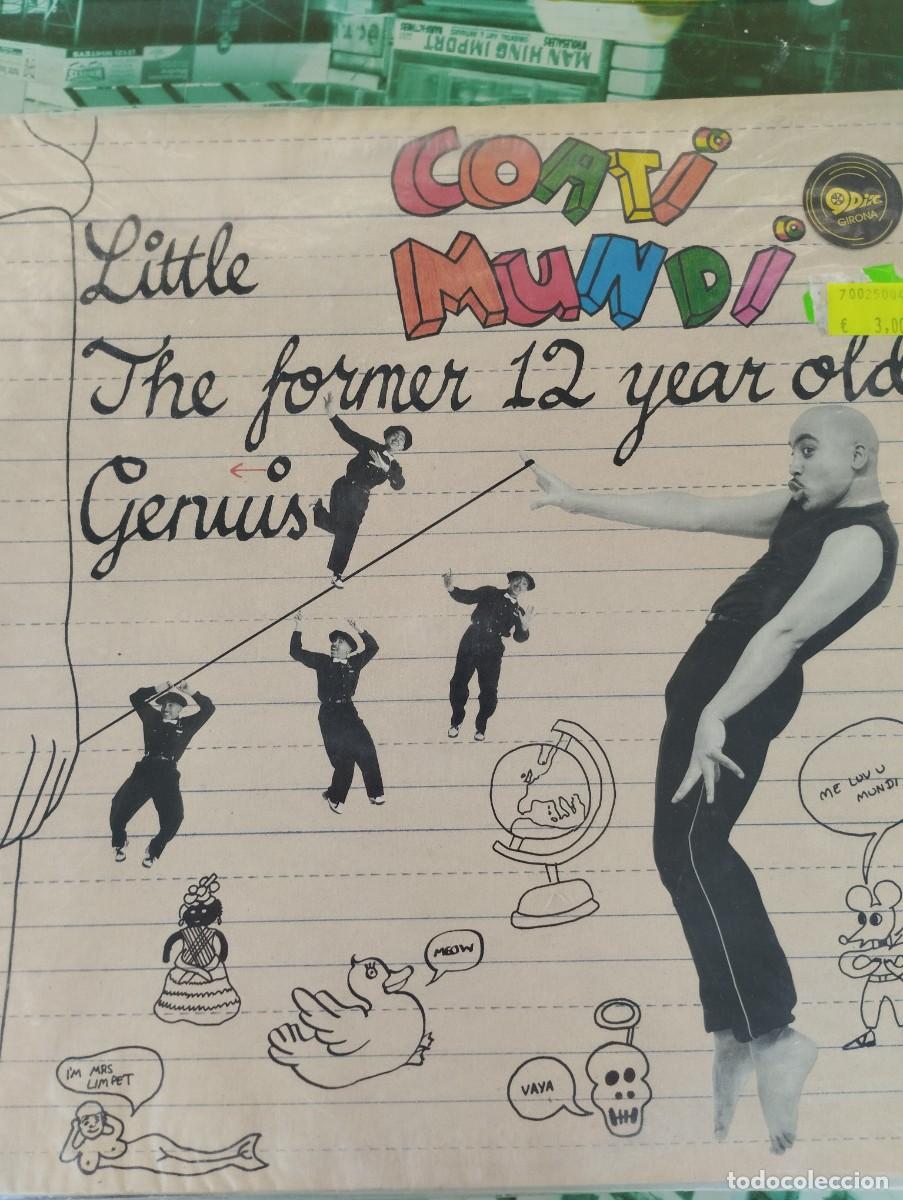 MAN HING IMPORT
COATI
MUNDI
9Disc
GIRONA
Little
70025004
€ 3,00
The former 12 year old
Genius
ME LUV U
MUNDI
MEOW
VAYA
I'M MRS
LIMPET
todocoleccion